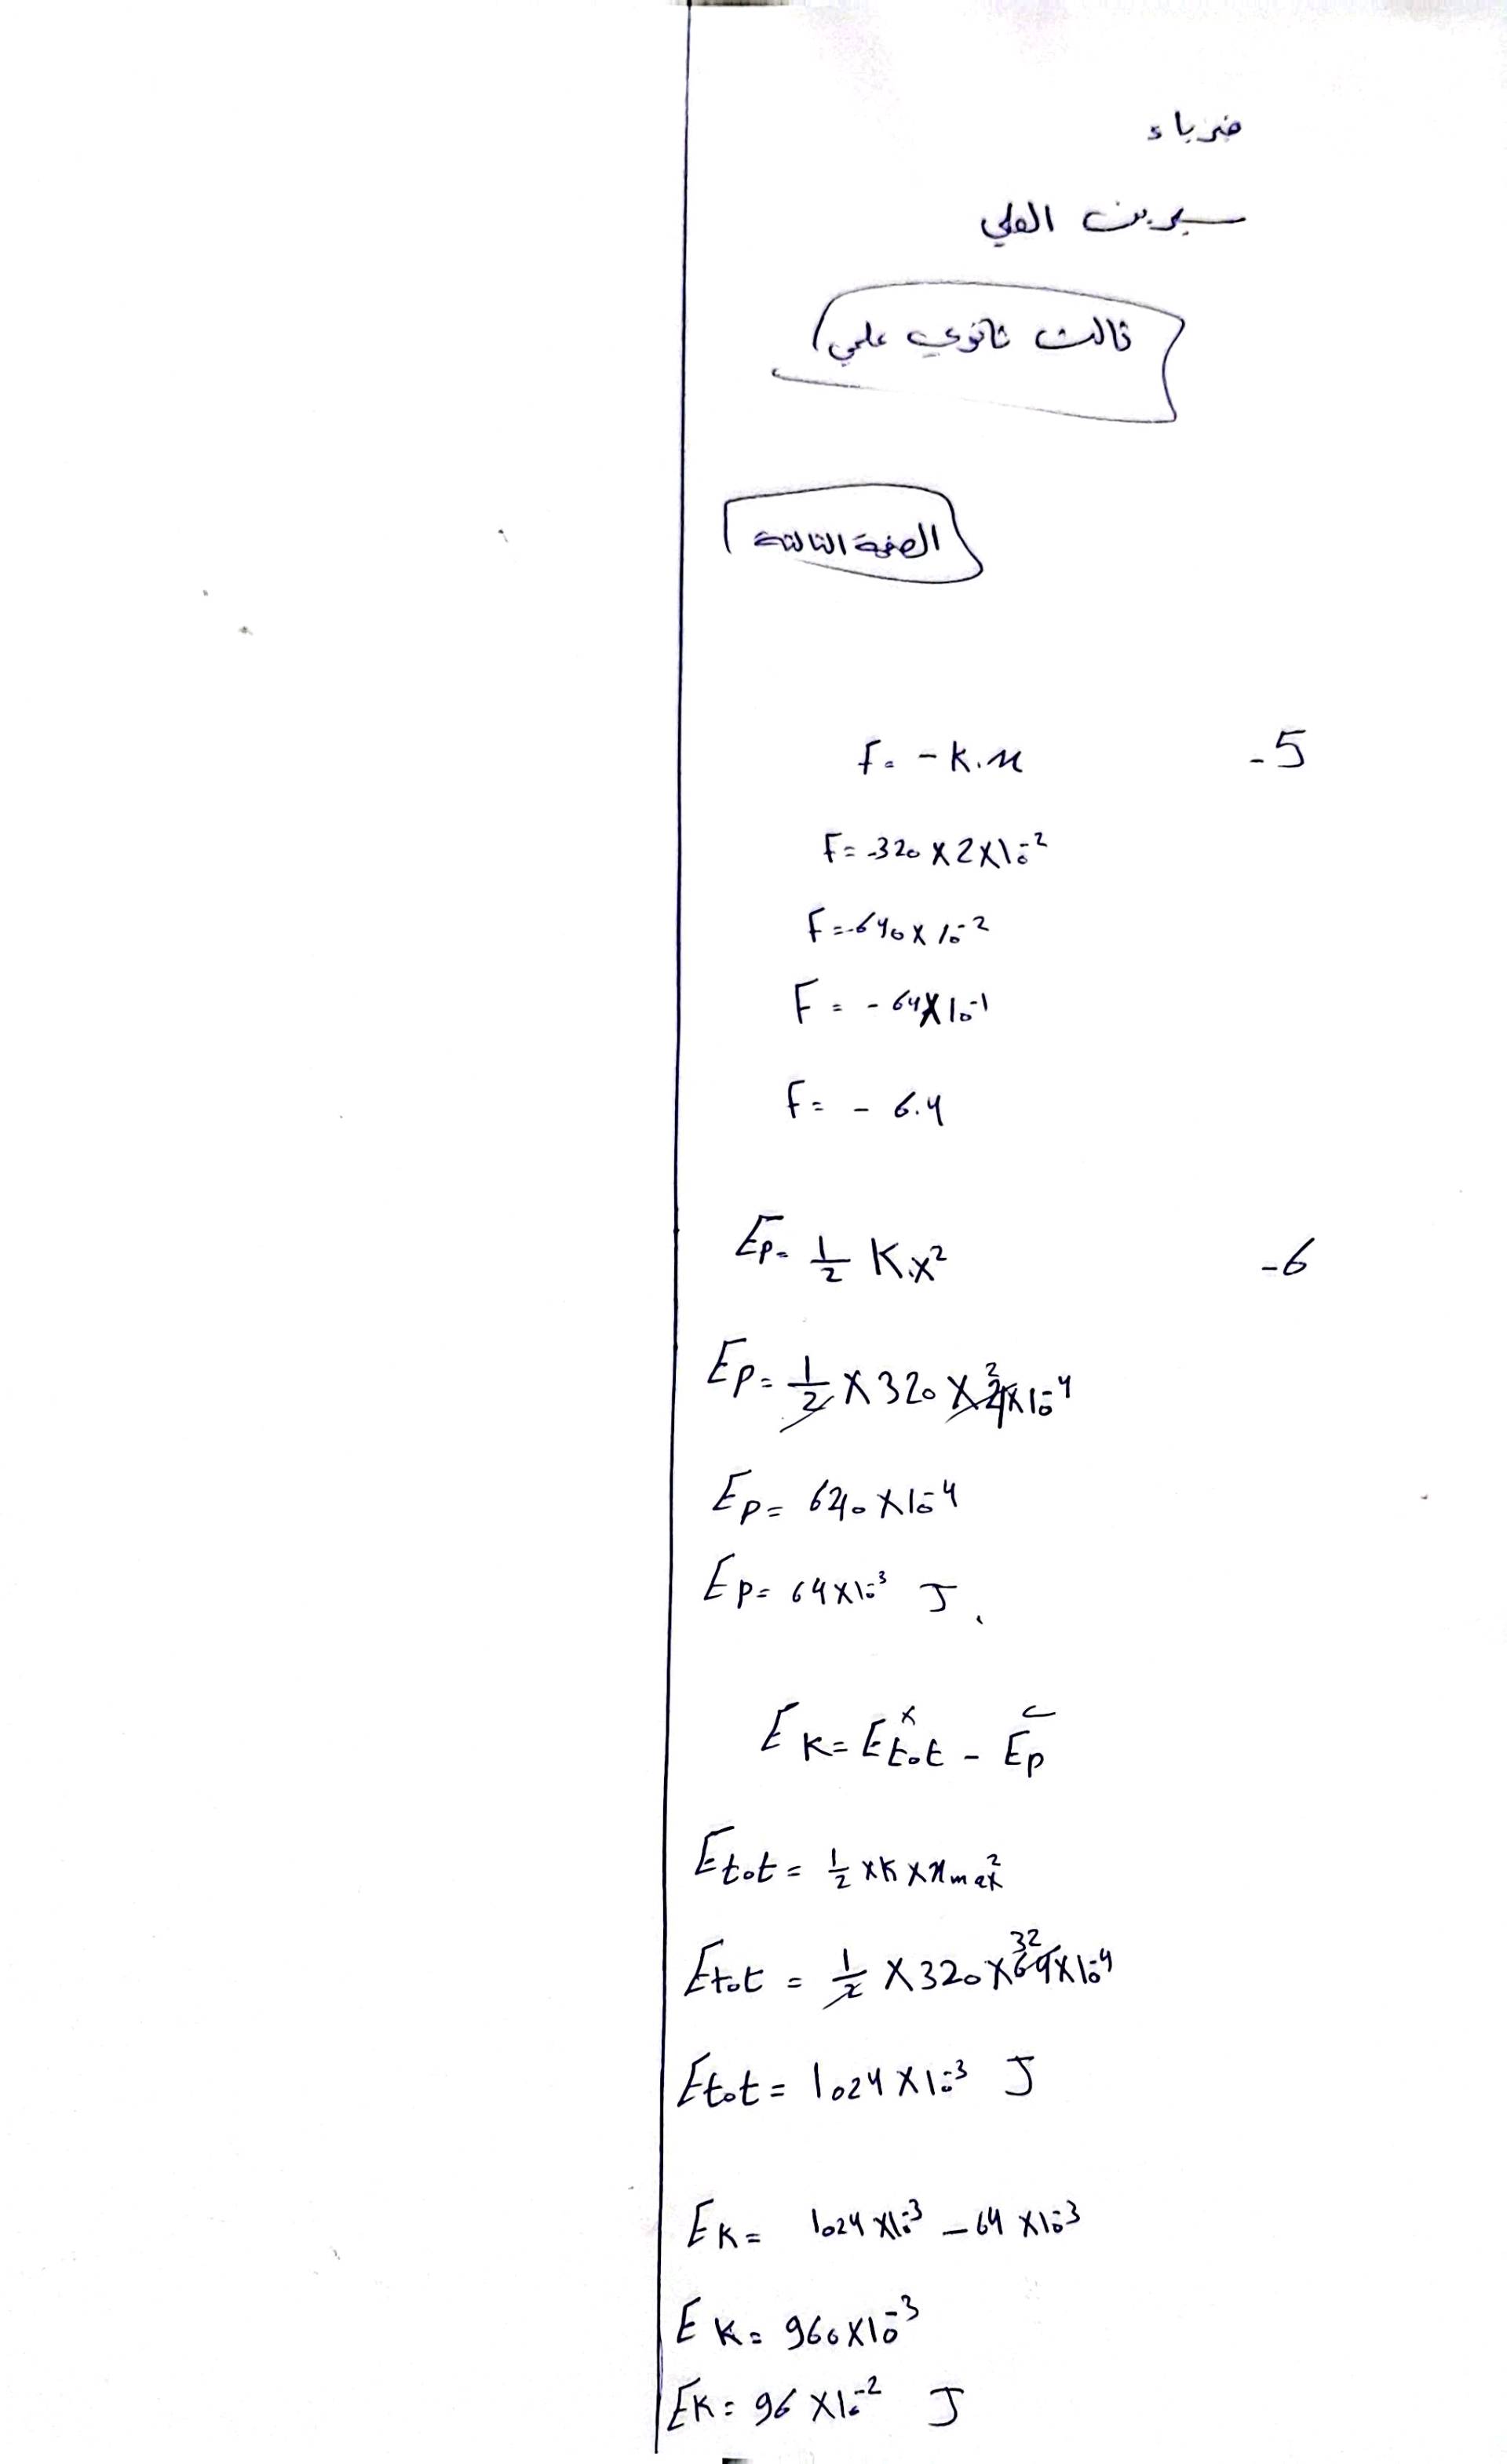 فيزياء
سيرين العلي
ثالث ثانوي علمي
الصفحة الثالثة
5- F = -K.x
F = -320 × 2 × 10^-2
F = -640 × 10^-2
F = -64 × 10^-1
F = -6.4
6- Ep = 1/2 K.x²
Ep = 1/2 × 320 × 4 × 10^-4 2
Ep = 640 × 10^-4
Ep = 64 × 10^-3 J.
EK = Etot - Ep
Etot = 1/2 × K × xmax²
Etot = 1/2 × 320 × 64 × 10^-4 32
Etot = 1024 × 10^-3 J
EK = 1024 × 10^-3 - 64 × 10^-3
EK = 960 × 10^-3
EK = 96 × 10^-2 J